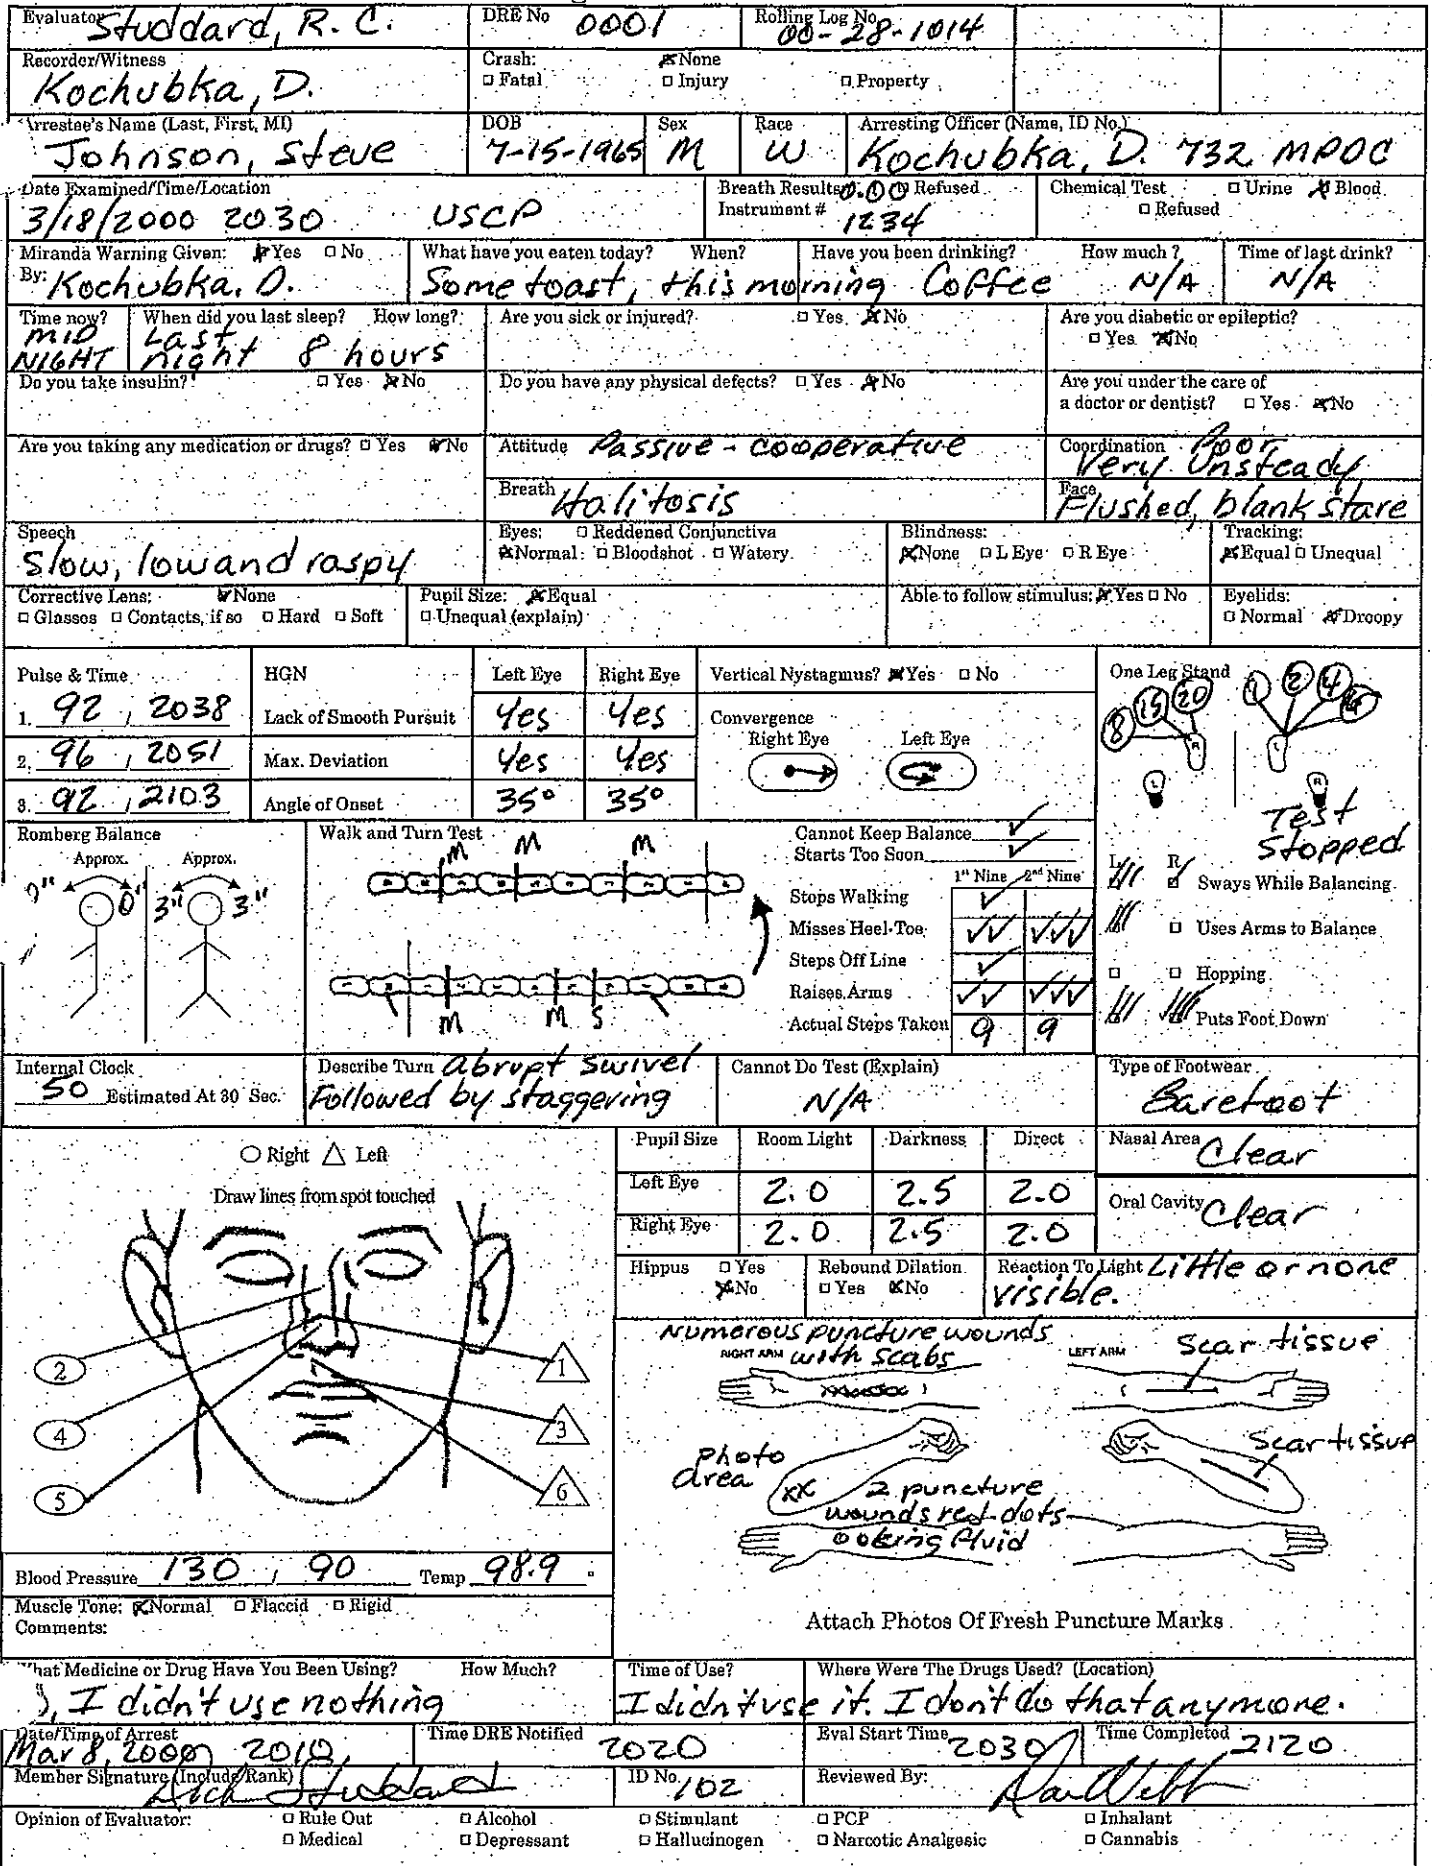 Evaluator Studdard, R. C. DRE No 0001 Rolling Log No. 00-28-1014
Recorder/Witness Kochubka, D. Crash: None Fatal Injury Property
Arrestee's Name (Last, First, MI) Johnson, Steve DOB 7-15-1965 Sex M Race W Arresting Officer (Name, ID No.) Kochubka, D. 732 MPDC
Date Examined/Time/Location 3/18/2000 2030 USCP Breath Results 0.00 Refused Instrument # 1234 Chemical Test Urine Blood Refused
Miranda Warning Given: Yes No By: Kochubka. D. What have you eaten today? When? Some toast, this morning Have you been drinking? Coffee How much? N/A Time of last drink? N/A
Time now? MID NIGHT When did you last sleep? How long? Last night 8 hours Are you sick or injured? Yes No Are you diabetic or epileptic? Yes No
Do you take insulin? Yes No Do you have any physical defects? Yes No Are you under the care of a doctor or dentist? Yes No
Are you taking any medication or drugs? Yes No Attitude Passive - cooperative Coordination Poor Very Unsteady
Breath Halitosis Face Flushed, blank stare
Speech Slow, low and raspy Eyes: Reddened Conjunctiva Normal: Bloodshot Watery Blindness: None L Eye R Eye Tracking: Equal Unequal
Corrective Lens: None Glasses Contacts, if so Hard Soft Pupil Size: Equal Unequal (explain) Able to follow stimulus: Yes No Eyelids: Normal Droopy
Pulse & Time HGN Left Eye Right Eye Vertical Nystagmus? Yes No One Leg Stand
1. 92 , 2038 Lack of Smooth Pursuit Yes Yes Convergence
2. 96 , 2051 Max. Deviation Yes Yes Right Eye Left Eye
3. 92 , 2103 Angle of Onset 35° 35°
8 15 20 1 2 4
R L
L R
Test Stopped
Romberg Balance Walk and Turn Test Cannot Keep Balance
Approx. Approx. Starts Too Soon
0" 3" 3"
M M M
M M S
1st Nine 2nd Nine
Stops Walking
Misses Heel-Toe
Steps Off Line
Raises Arms
Actual Steps Taken 9 9
L R
Sways While Balancing
Uses Arms to Balance
Hopping
Puts Foot Down
Internal Clock 50 Estimated At 30 Sec. Describe Turn abrupt swivel Followed by staggering Cannot Do Test (Explain) N/A Type of Footwear Barefoot
Right Left
Draw lines from spot touched
2 1
4 3
5 6
Pupil Size Room Light Darkness Direct Nasal Area Clear
Left Eye 2.0 2.5 2.0 Oral Cavity Clear
Right Eye 2.0 2.5 2.0
Hippus Yes No Rebound Dilation Yes No Reaction To Light Little or none visible.
Numerous puncture wounds with scabs
RIGHT ARM LEFT ARM Scar tissue
Scar tissue
Photo area XX 2 puncture wounds red dots oozing fluid
Attach Photos Of Fresh Puncture Marks
Blood Pressure 130 , 90 Temp 98.9 °
Muscle Tone: Normal Flaccid Rigid
Comments:
What Medicine or Drug Have You Been Using? How Much? I didn't use nothing Time of Use? Where Were The Drugs Used? (Location) I didn't use it. I don't do that anymore.
Date/Time of Arrest Mar 8, 2000 2010 Time DRE Notified 2020 Eval Start Time 2030 Time Completed 2120
Member Signature (Include Rank) Dick Studdard ID No. 102 Reviewed By: Dan Webb
Opinion of Evaluator: Rule Out Alcohol Stimulant PCP Inhalant
Medical Depressant Hallucinogen Narcotic Analgesic Cannabis